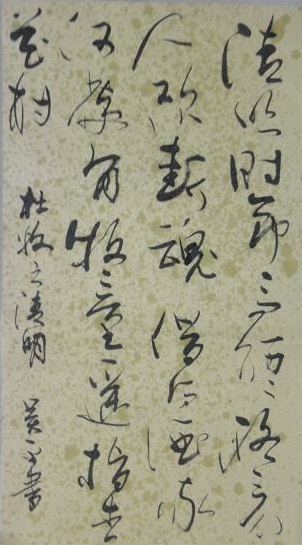 清明时节雨纷纷路上行
人欲断魂借问酒家
何处有牧童遥指杏
花村
杜牧之清明